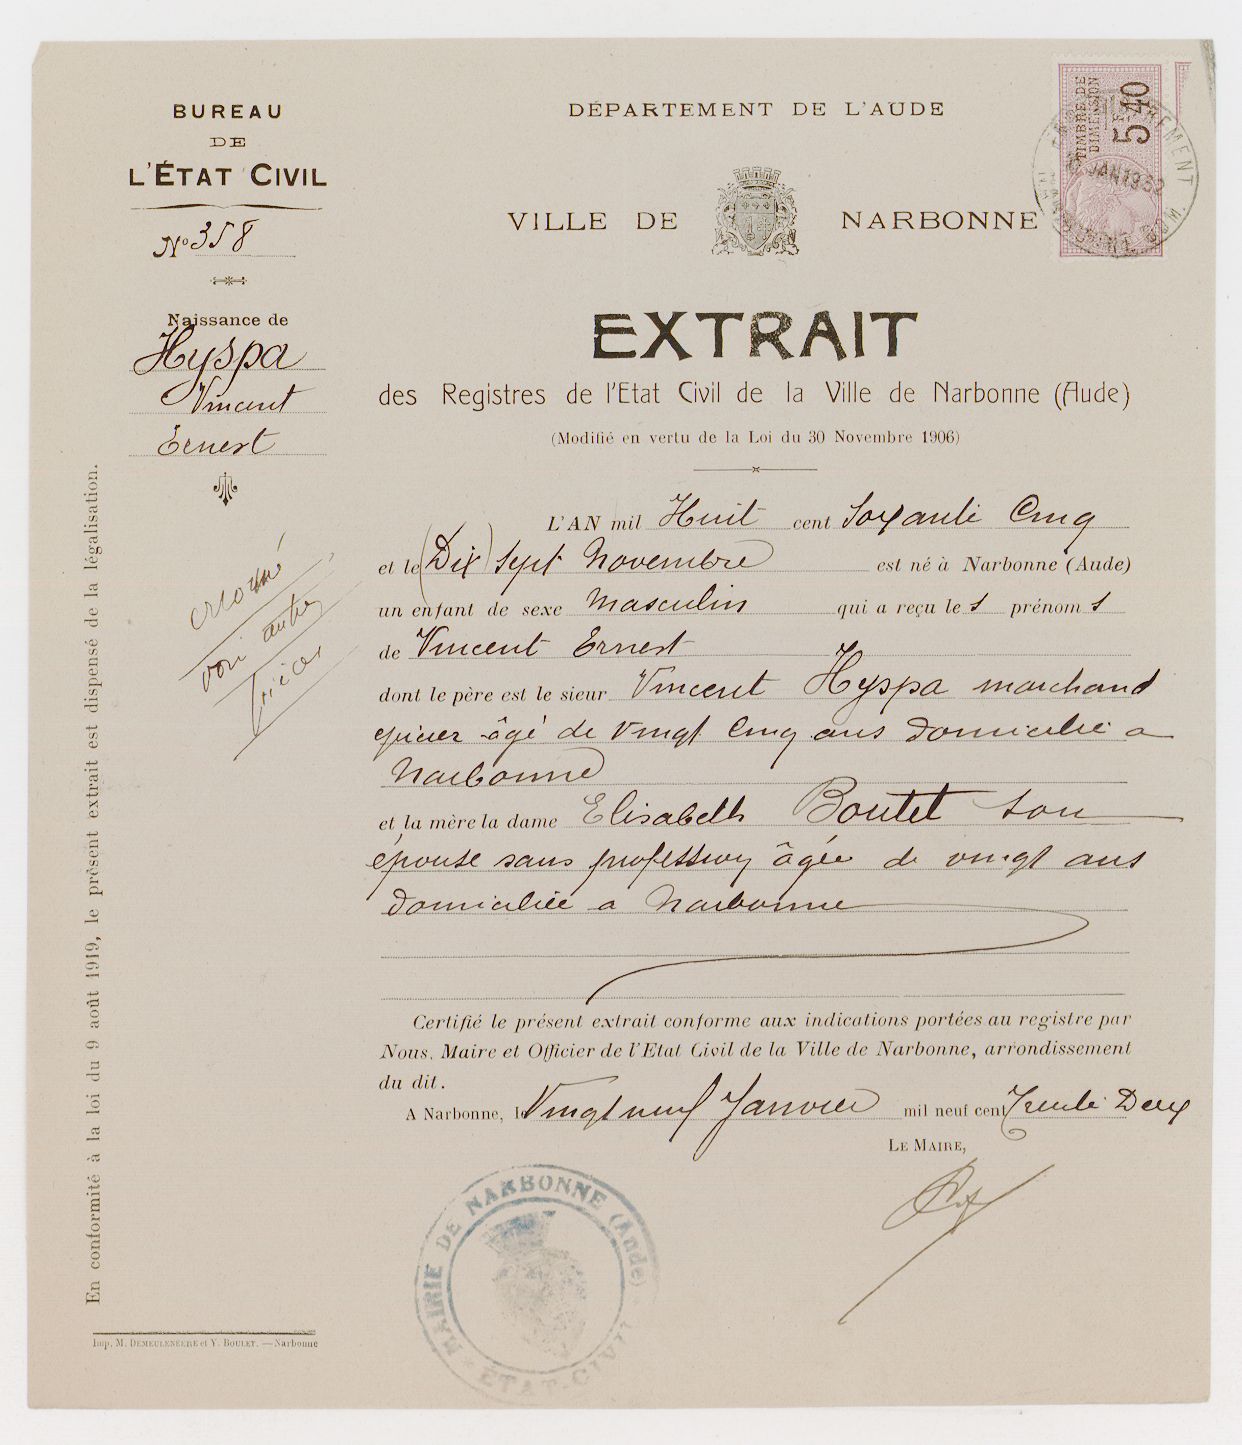 BUREAU
DE
L'ÉTAT CIVIL
No 358
Naissance de
Hyspa
Vincent
Ernest
erroné
voir autres
pièces
En conformité à la loi du 9 août 1919, le présent extrait est dispensé de la légalisation.
Imp. M. DEMEULENEERE et Y. BOULET. — Narbonne
DÉPARTEMENT DE L'AUDE
VILLE DE NARBONNE
TIMBRE DE
DIMENSION
5F40
JAN 1932
EXTRAIT
des Registres de l'Etat Civil de la Ville de Narbonne (Aude)
(Modifié en vertu de la Loi du 30 Novembre 1906)
L'AN mil Huit cent Soixante Cinq
et le (Dix) Sept Novembre est né à Narbonne (Aude)
un enfant de sexe Masculin qui a reçu le s prénom s
de Vincent Ernest
dont le père est le sieur Vincent Hyspa marchand
épicier âgé de Vingt Cinq ans domicilié a
Narbonne
et la mère la dame Elisabeth Boutet son
épouse sans profession âgée de vingt ans
domiciliée a Narbonne
Certifié le présent extrait conforme aux indications portées au registre par
Nous, Maire et Officier de l'Etat Civil de la Ville de Narbonne, arrondissement
du dit.
A Narbonne, le Vingt neuf Janvier mil neuf cent Trente Deux
LE MAIRE,
MAIRIE DE NARBONNE (Aude)
ÉTAT-CIVIL